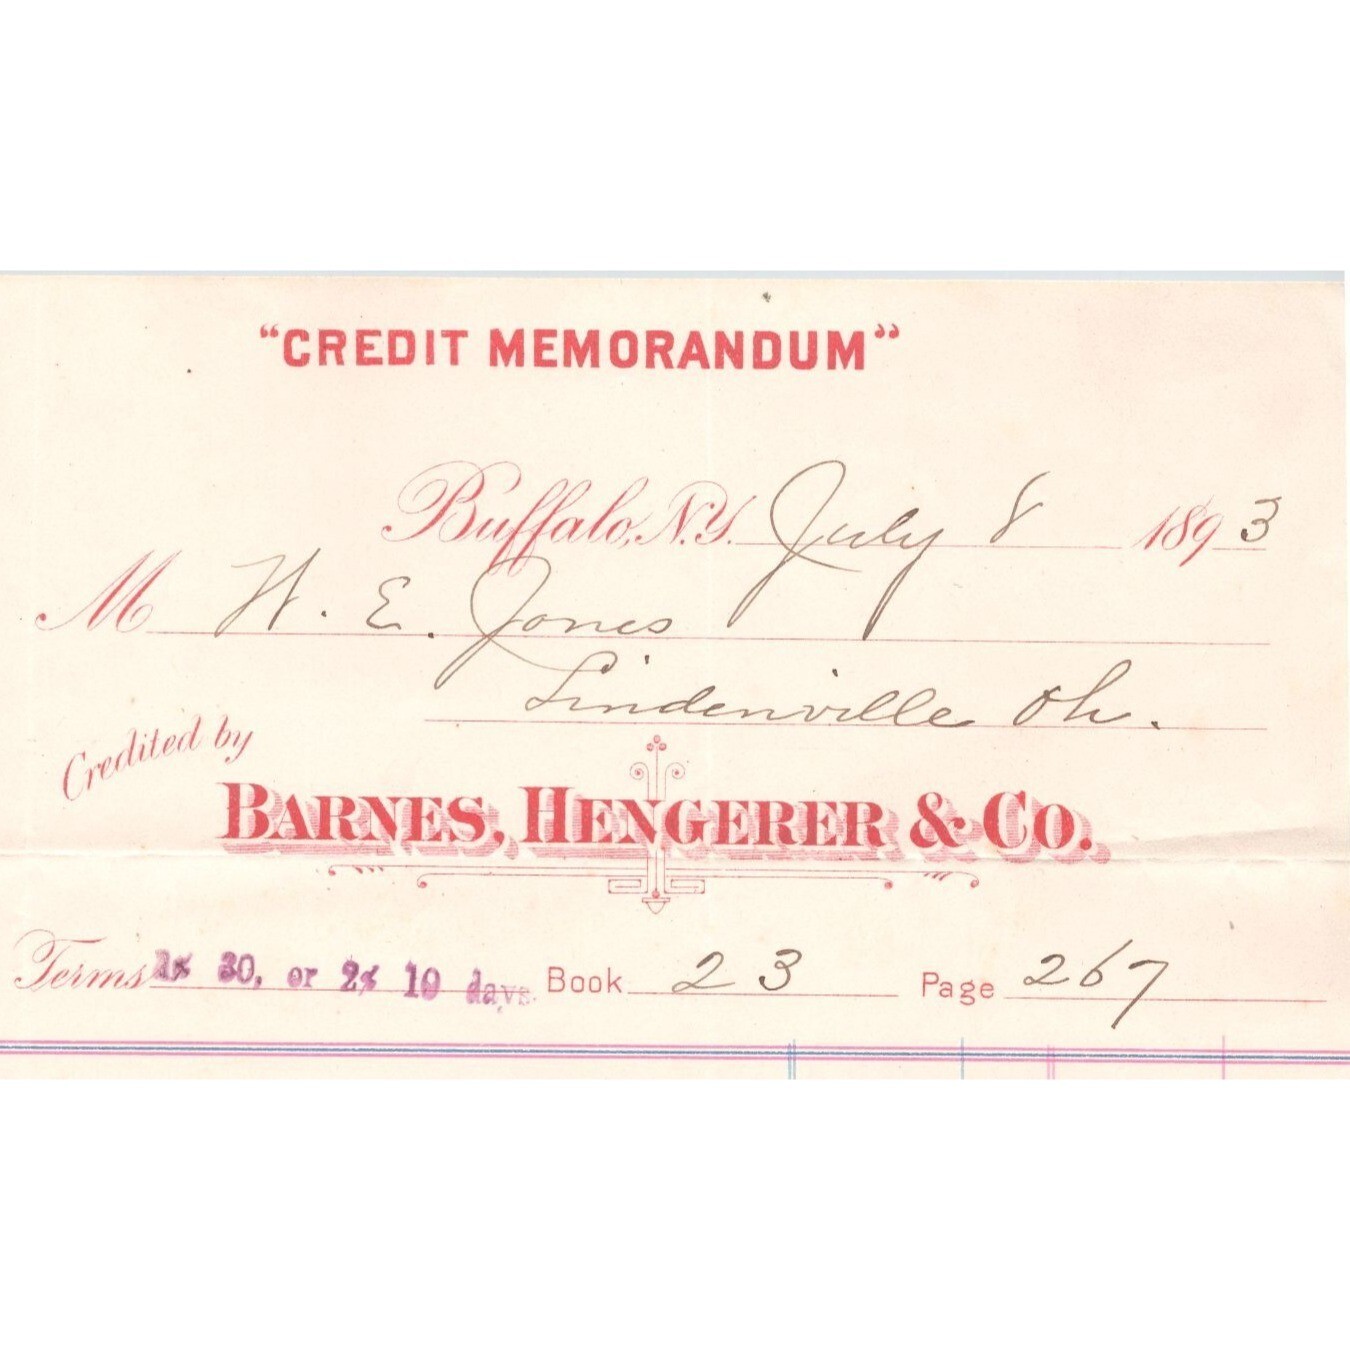 “CREDIT MEMORANDUM”
Buffalo, N.Y. July 8 1893
M W. E. Jones
Lindenville Oh.
Credited by
BARNES, HENGERER & CO.
Terms 1% 30, or 2% 10 days. Book 23 Page 267